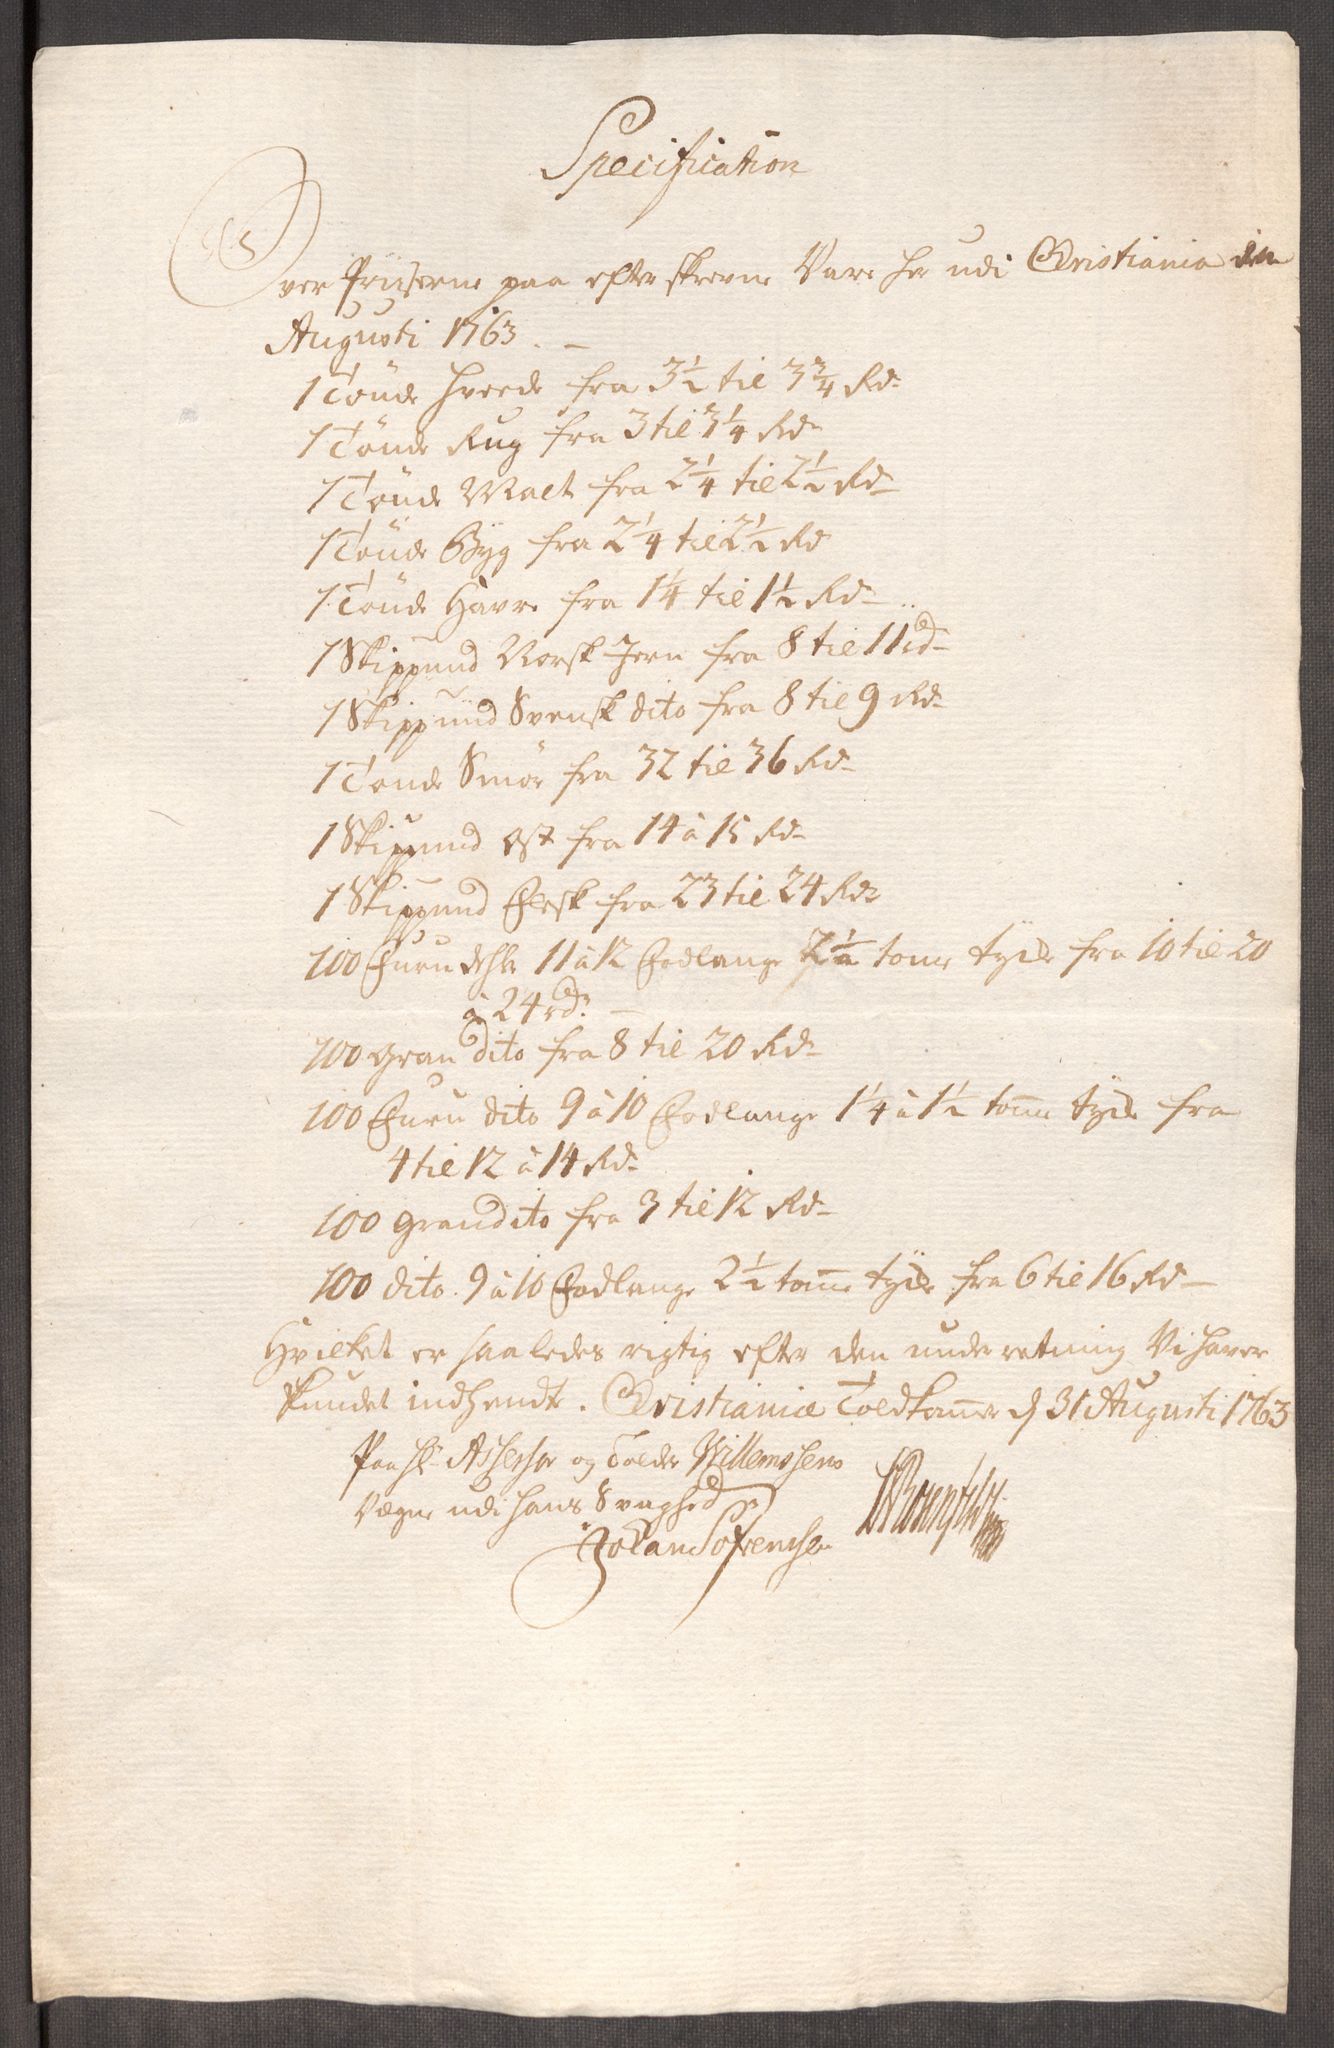 Specification
Over Priiserne paa efterskrevne Vare her udi Christiania den
Augusti 1763. —
1 Tönde Hvede fra 3½ til 3¾ Rd
1 Tönde Rug fra 3 til 3¼ Rd
1 Tönde Malt fra 2¼ til 2½ Rd
1 Tönde Byg fra 2¼ til 2½ Rd
1 Tönde Havre fra 1¼ til 1½ Rd
1 Skippund Norsk Jern fra 8 til 11 rd
1 Skippund Svensk dito fra 8 til 9 Rd
1 Tönde Smör fra 32 til 36 Rd
1 Skippund Ost fra 14 à 15 Rd
1 Skippund Flesk fra 23 til 24 Rd
100 Furu dehle 11 à 12 Fodlange 2½ tome tyck fra 10 til 20
à 24 rd. —
100 gran dito fra 8 til 20 Rd
100 Furu dito 9 à 10 Fodlange 1¼ à 1½ tome tyck fra
4 til 12 à 14 Rd
100 gran dito fra 3 til 12 Rd
100 dito 9 à 10 Fodlange 2½ tome tyck fra 6 til 16 Rd —
Hvilket er saaledes rigtig efter den underretning Vi haver
kundet indhendte. Christianiæ Toldkamer d 31 Augusti 1763
Paa Hr Assessor og Tolder Willemssens
Vegne udi hans Svaghed
Johan Sörensen